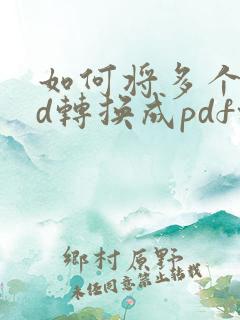 如何将多个
d轉換成pdf
鄉村原野
未经同意禁止转载